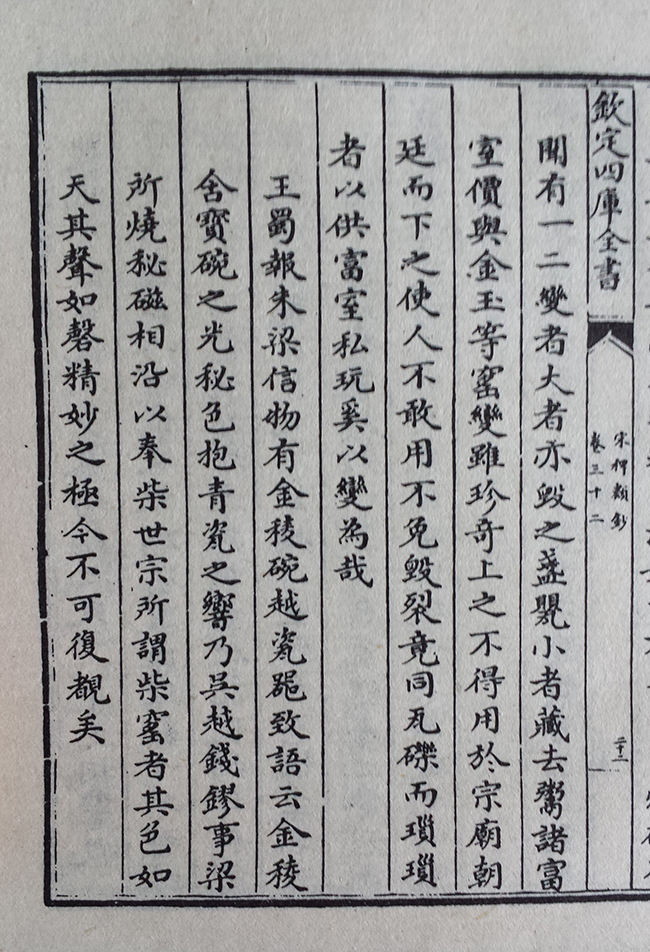 欽定四庫全書
宋稗類鈔
卷三十二
二十二
聞有一二變者大者亦毀之盞甖小者藏去鬻諸富
室價與金玉等窰變雖珍奇上之不得用於宗廟朝
廷而下之使人不敢用不免毀裂竟同瓦礫而瑣瑣
者以供富室私玩奚以變為哉
王蜀報朱梁信物有金稜碗越瓷器致語云金稜
含寶碗之光秘色抱青瓷之響乃吳越錢鏐事梁
所燒秘磁相沿以奉柴世宗所謂柴窰者其色如
天其聲如磬精妙之極今不可復覩矣